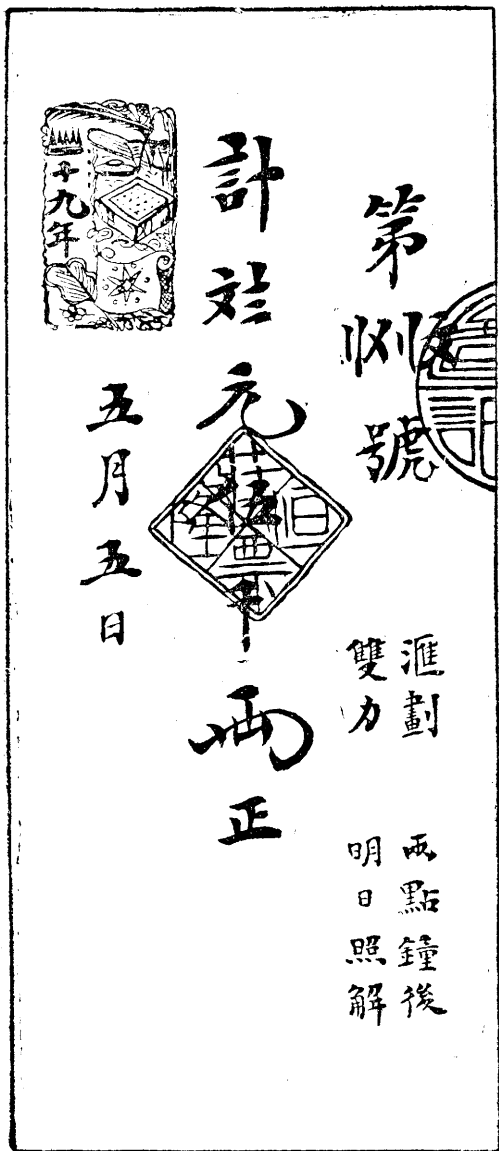 第 號
滙劃
雙力
兩點鐘後
明日照解
計 元 十兩正
恒隆莊票
十九年
五月五日